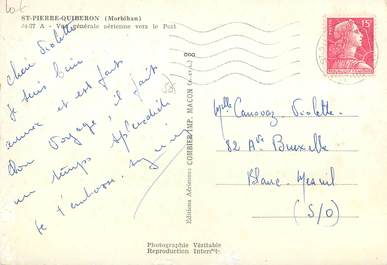 ST-PIERRE-QUIBERON (Morbihan)
24-27 A - Vue générale aérienne vers le Port
chère Violette
Je suis bien
arrivée et est fait
bon voyage, il fait
un temps splendide
je t'embrasse.
Editions Aériennes COMBIER IMP. MACON
15F
Melle Canovas Violette
82 Ave Bruxelle
Blanc-Mesnil
(S/O)
Photographie Véritable
Reproduction Interdite